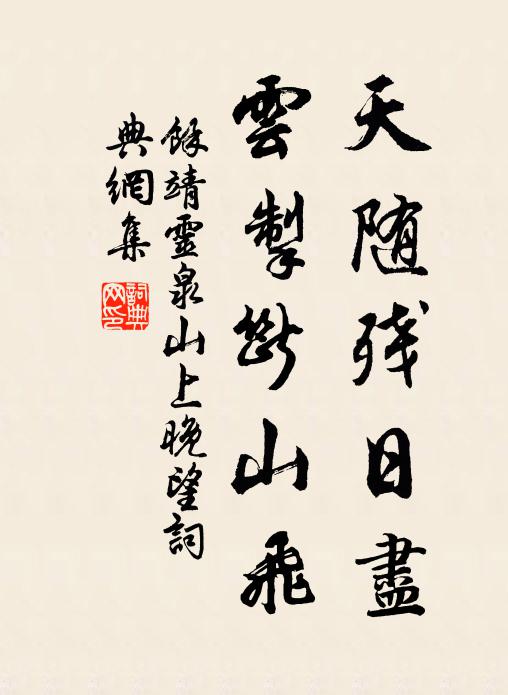 天随残日盡
雲掣斷山飛
餘靖靈泉山上晚望詞
典網集
詞典
网印